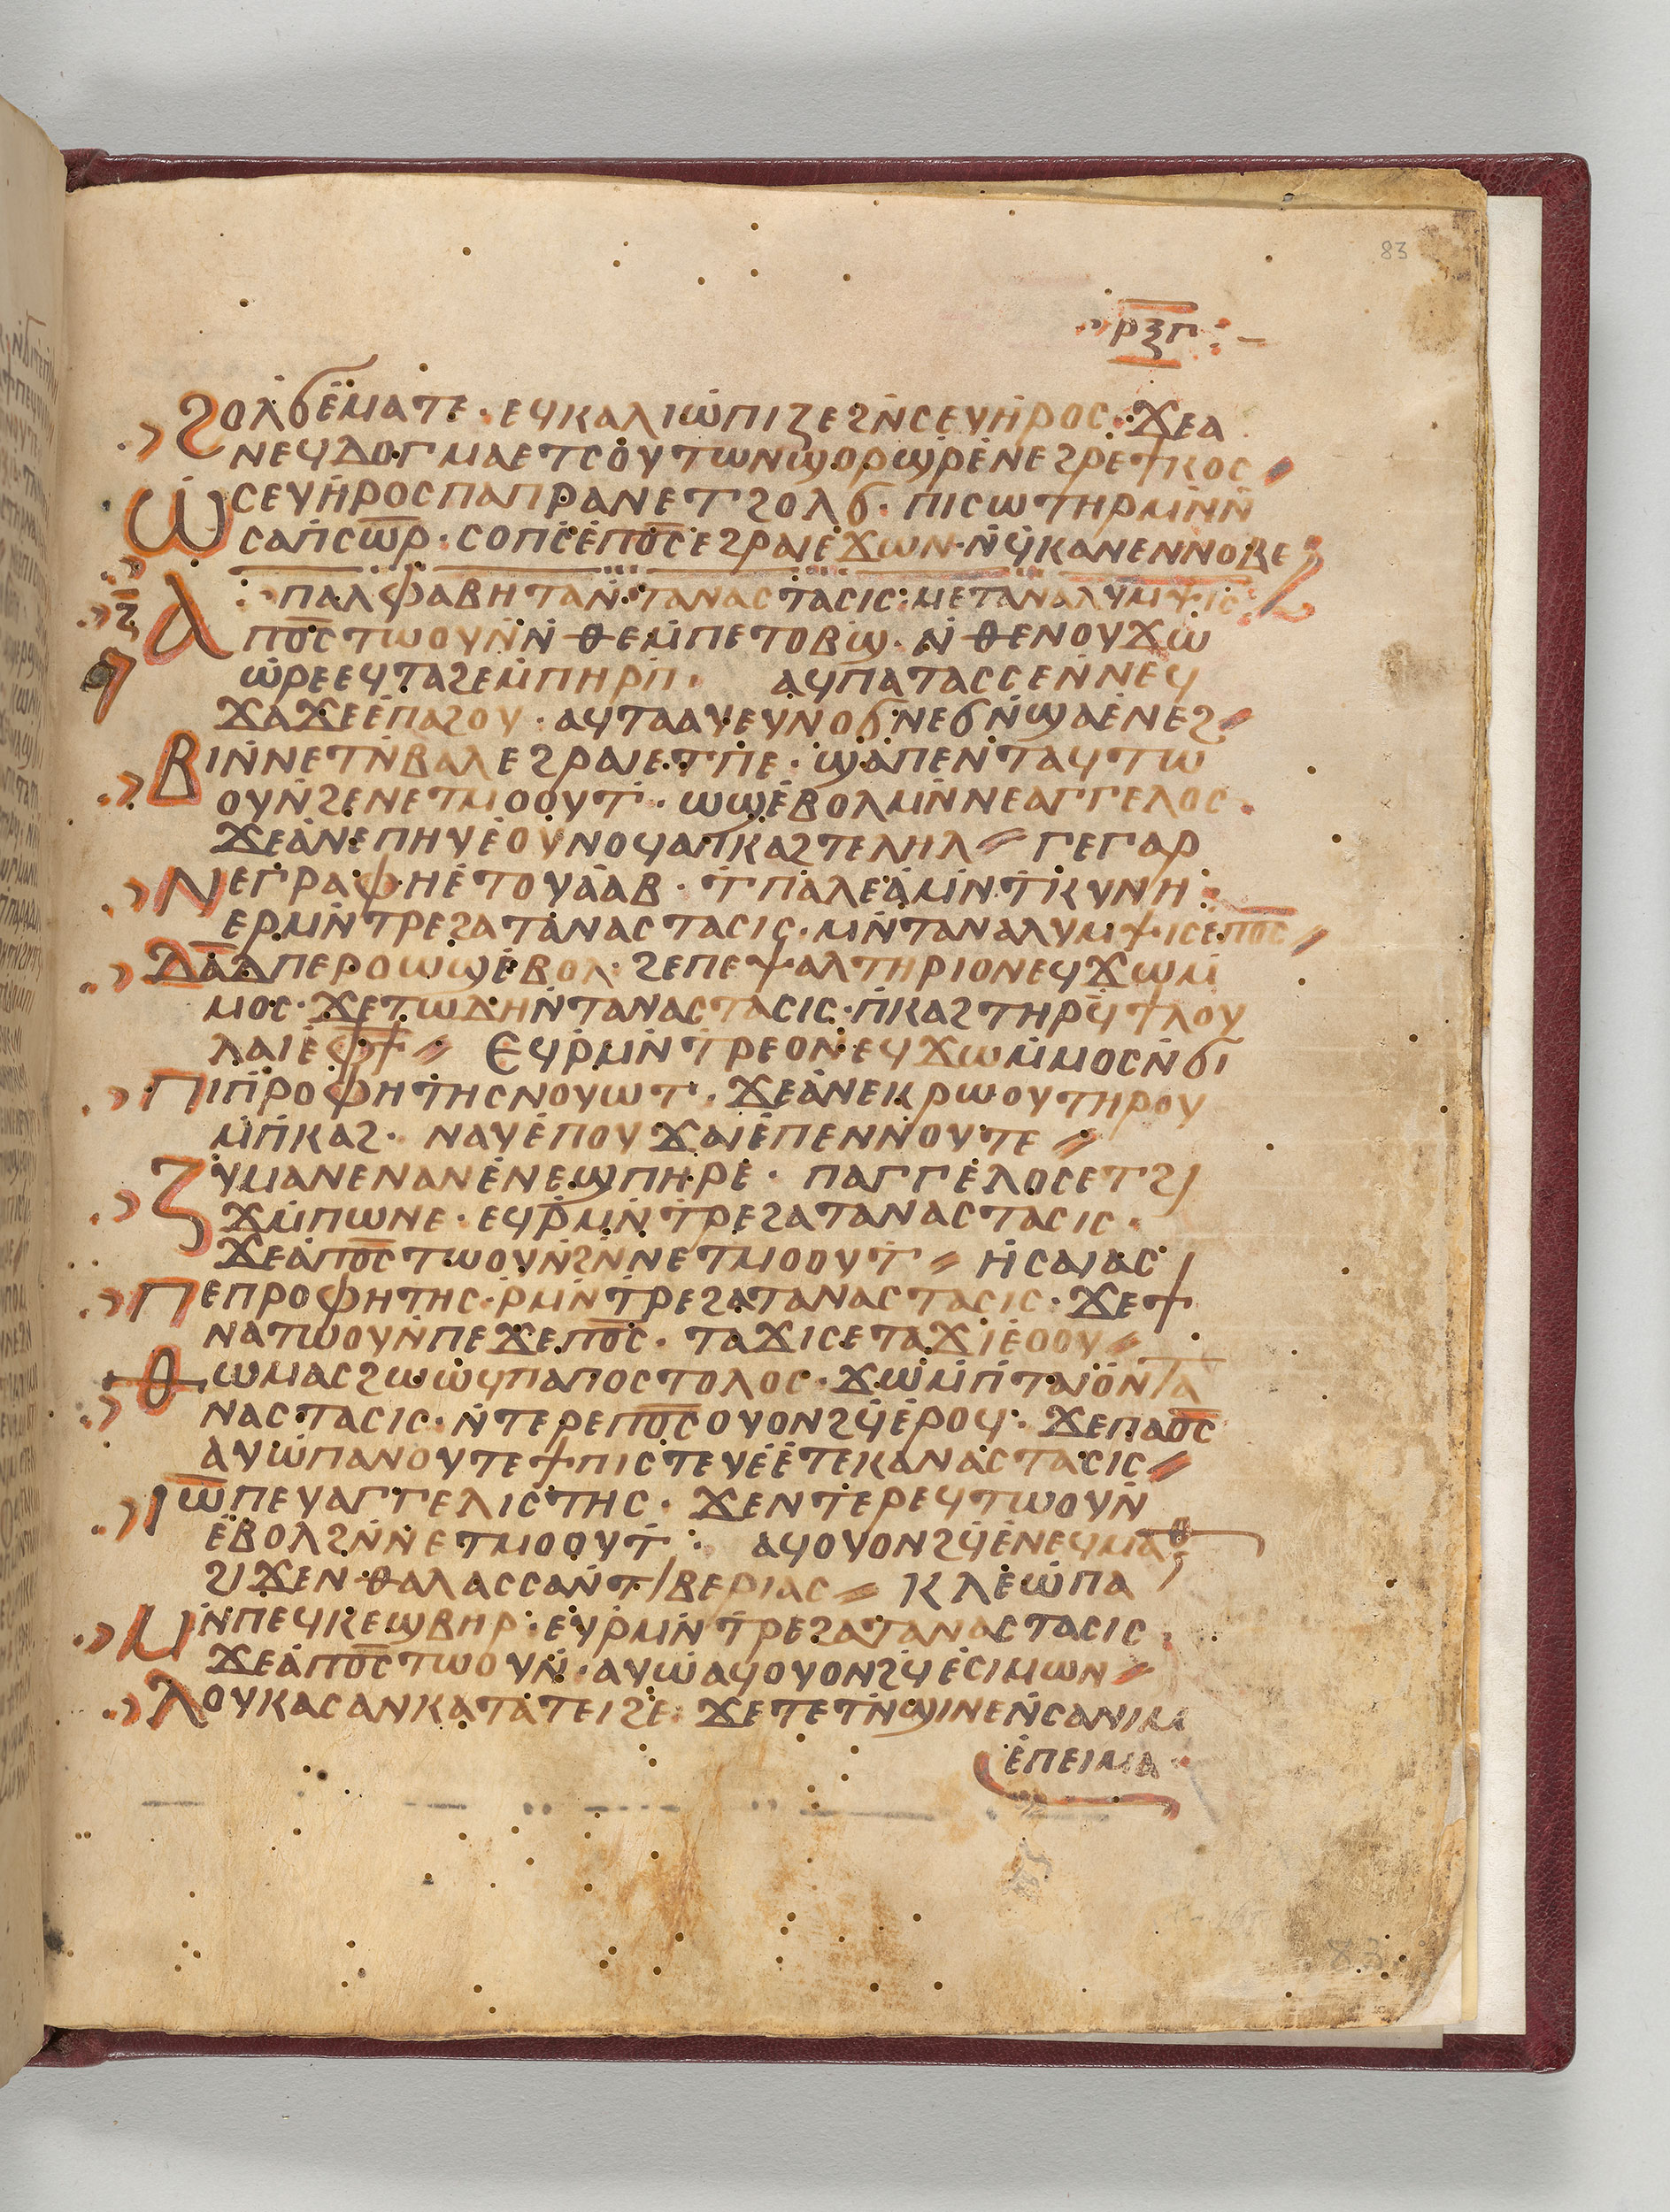 83
ⲣⲝⲡ
ϩⲟⲗϭⲉⲙⲁⲧⲉ · ⲉϥⲕⲁⲗⲓⲱⲡⲓⲍⲉϩⲛ̀ⲥⲉⲩⲏⲣⲟⲥ · ϫⲉⲁ
ⲛⲉϥⲇⲟⲅⲙⲁⲉⲧⲥⲟⲩⲧⲱⲛϣⲟⲣϣⲣ̀ⲉⲛⲉϩⲣⲉϯⲕⲟⲥ
ⲱ̀ⲥⲉⲩⲏⲣⲟⲥⲡⲁⲡⲣⲁⲛⲉⲧϩⲟⲗϭ · ⲡⲓⲥⲱⲧⲏⲣⲙⲛ̀ⲛ̀
ⲥⲁⲡⲥⲱ̅ⲣ̅ · ⲥⲟⲡⲥ̀ⲉ̀ⲡⲟ̅ⲥ̅ⲉϩⲣⲁⲓⲉ̀ϫⲱⲛ · ⲛϥ̀ⲕⲁⲛⲉⲛⲛⲟⲃⲉ
ⲡⲁⲗⲫⲁⲃⲏⲧⲁⲛ̀ · ⲧⲁⲛⲁⲥⲧⲁⲥⲓⲥ : ⲙⲉⲧⲁⲛⲁⲗⲩⲙⲯⲓⲥ
ⲁⲡⲟ̅ⲥ̅ⲧⲱⲟⲩⲛ̀ⲛ̀ⲑⲉⲙ̀ⲡⲉⲧⲟⲃϣ · ⲛ̀ⲑⲉⲛⲟⲩϫⲱ
ⲱ̀ⲣⲉⲉϥⲧⲁϩⲉⲙ̀ⲡⲏⲣⲡ · ⲁϥⲡⲁⲧⲁⲥⲥⲉⲛ̀ⲛⲉϥ
ϫⲁϫⲉⲉ̀ⲡⲁϩⲟⲩ · ⲁϥⲧⲁⲁⲩⲉⲩⲛⲟϭⲛⲉϭⲛ̀ϣⲁⲉ̀ⲛⲉϩ
ⲃⲓⲛ̀ⲛⲉⲧⲛ̀ⲃⲁⲗⲉϩⲣⲁⲓⲉⲧⲡⲉ · ϣⲁⲡⲉⲛⲧⲁϥⲧⲱ
ⲟⲩⲛ̀ϩⲉⲛⲉⲧⲙⲟⲟⲩⲧ̀ · ⲱϣⲉ̀ⲃⲟⲗⲙⲛ̀ⲛⲉⲁⲅⲅⲉⲗⲟⲥ
ϫⲉⲁ̀ⲛⲉⲡⲏⲩⲉ̀ⲟⲩⲛⲟϥⲁⲡⲕⲁϩⲧⲉⲗⲏⲗ ⲅⲉⲅⲁⲣ
ⲛⲉⲅⲣⲁⲫⲏⲉ̀ⲧⲟⲩⲁ̀ⲁⲃ · ⲧ̀ⲡⲁⲗⲉⲁ̀ⲙⲛ̀ⲧ̀ⲕⲩⲛⲏ
ⲉⲣⲙⲛ̀ⲧⲣⲉϩⲁⲧⲁⲛⲁⲥⲧⲁⲥⲓⲥ · ⲙⲛ̀ⲧⲁⲛⲁⲗⲩⲙⲯⲓⲥⲉ̀ⲡⲟ̅ⲥ̅
ⲇⲁ̅ⲇ̅ⲡⲉⲣⲟⲱϣⲉ̀ⲃⲟⲗ · ϩⲉⲡⲉⲯⲁⲗⲧⲏⲣⲓⲟⲛⲉϥϫⲱⲙ̀
ⲙⲟⲥ · ϫⲉⲧⲱⲇⲏⲛ̀ⲧⲁⲛⲁⲥⲧⲁⲥⲓⲥ · ⲡ̀ⲕⲁϩⲧⲏⲣϥ̀ϯⲗⲟⲩ
ⲗⲁⲓⲉ̀ⲫ̅ϯ̅ ⲉϥⲣ̀ⲙⲛ̀ⲧⲣⲉⲟⲛⲉϥϫⲱⲙ̀ⲙⲟⲥⲛ̀ϭⲓ
ⲡⲓⲡ̀ⲣⲟⲫⲏⲧⲏⲥⲛⲟⲩⲱⲧ · ϫⲉⲁ̀ⲛⲉⲕⲣⲱⲟⲩⲧⲏⲣⲟⲩ
ⲙ̀ⲡ̀ⲕⲁϩ · ⲛⲁⲩⲉ̀ⲡⲟⲩϫⲁⲓⲉ̀ⲡⲉⲛⲛⲟⲩⲧⲉ
ⲍⲩⲙⲁⲛⲉⲛⲁⲛⲉ̀ⲛⲉϣⲡⲏⲣⲉ · ⲡⲁⲅⲅⲉⲗⲟⲥⲉⲧϩⲓ
ϫⲙ̀ⲡⲱⲛⲉ · ⲉϥⲣ̀ⲙⲛ̀ⲧ̀ⲣⲉϩⲁⲧⲁⲛⲁⲥⲧⲁⲥⲓⲥ ·
ϫⲉⲁ̀ⲡⲟ̅ⲥ̅ⲧⲱⲟⲩⲛ̀ϩⲛ̀ⲛⲉⲧⲙⲟⲟⲩⲧ̀ ⲏ̀ⲥⲁⲓⲁⲥ
ⲡⲉⲡⲣⲟⲫⲏⲧⲏⲥ · ⲣ̀ⲙⲛ̀ⲧ̀ⲣⲉϩⲁⲧⲁⲛⲁⲥⲧⲁⲥⲓⲥ · ϫⲉϯ
ⲛⲁⲧⲱⲟⲩⲛ̀ⲡⲉϫⲉⲡⲟ̅ⲥ̅ · ⲧⲁϫⲓⲥⲉⲧⲁϫⲓⲉ̀ⲟⲟⲩ
ⲑⲱⲙⲁⲥϩⲱⲱ̀ϥⲡⲁⲡⲟⲥⲧⲟⲗⲟⲥ · ϫⲱ̀ⲙ̀ⲡ̀ⲧⲁⲓ̈ⲟ̀ⲛ̀ⲧⲁ
ⲛⲁⲥⲧⲁⲥⲓⲥ · ⲛ̀ⲧⲉⲣⲉⲡⲟ̅ⲥ̅ⲟⲩⲟⲛϩϥ̀ⲉ̀ⲣⲟϥ : ϫⲉⲡⲁⲟ̅ⲥ̅
ⲁⲩⲱ̀ⲡⲁⲛⲟⲩⲧⲉϯⲡⲓⲥⲧⲉⲩⲉ̀ⲉ̀ⲧⲉⲕⲁⲛⲁⲥⲧⲁⲥⲓⲥ
ⲓⲱ̅ⲡⲉⲩⲁⲅⲅⲉⲗⲓⲥⲧⲏⲥ · ϫⲉⲛⲧⲉⲣⲉϥⲧⲱⲟⲩⲛ̀
ⲉ̀ⲃⲟⲗϩⲛ̀ⲛⲉⲧⲙⲟⲟⲩⲧ̀ : ⲁϥⲟⲩⲟⲛϩϥ̀ⲉ̀ⲛⲉϥⲙⲁⲑ
ϩⲓϫⲉⲛⲑⲁⲗⲁⲥⲥⲁⲛ̀ⲧⲓⲃⲉⲣⲓⲁⲥ ⲕⲗⲉⲱ̀ⲡⲁ
ⲙⲛ̀ⲡⲉϥⲕⲉϣⲃⲏⲣ : ⲉⲩⲣ̀ⲙⲛ̀ⲧⲣⲉϩⲁⲧⲁⲛⲁⲥⲧⲁⲥⲓⲥ
ϫⲉⲁ̀ⲡⲟ̅ⲥ̅ⲧⲱⲟⲩⲛ̀ · ⲁⲩⲱ̀ⲁϥⲟⲩⲟⲛϩϥ̀ⲉ̀ⲥⲓⲙⲱⲛ
ⲗⲟⲩⲕⲁⲥⲁⲛⲕⲁⲧⲁⲧⲉⲓϩⲉ · ϫⲉⲧⲉⲧⲛ̀ϣⲓⲛⲉⲛ̀ⲥⲁⲛⲓⲙ
ⲉ̀ⲡⲉⲓⲙⲁ